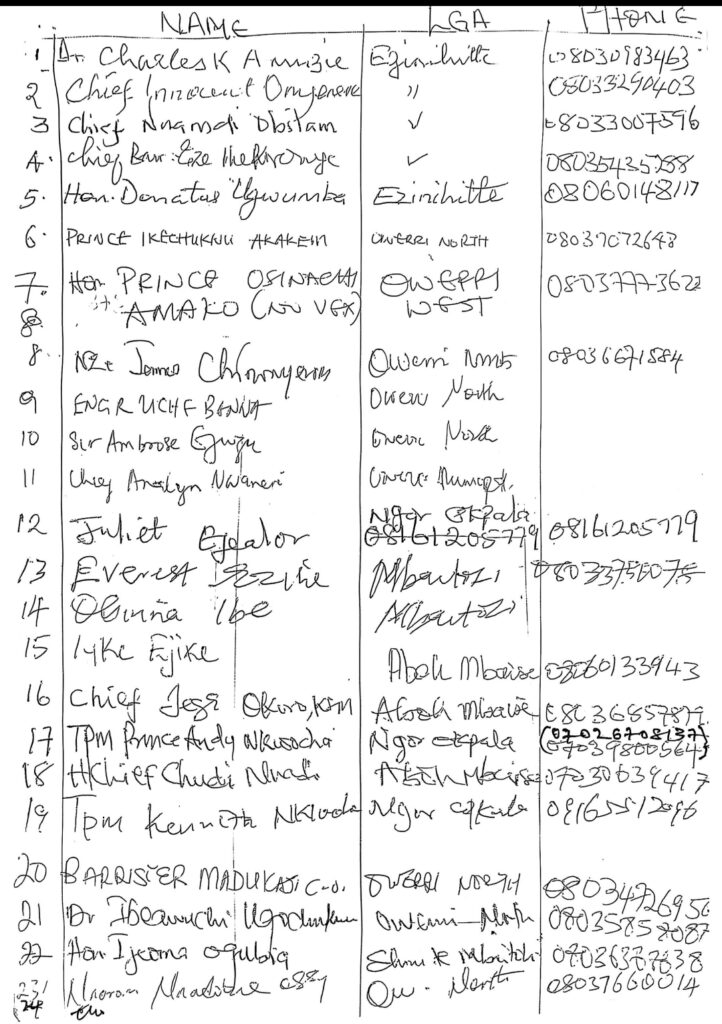 NAME LGA PHONE
1 Dr. Charles K Amuzie Ezinihitte 08030983463
2 Chief Innocent Ezinihitte 08033290403
3 Chief Nnamdi Obilam ✓ 08033007596
4. Chief Barr. Eze ✓ 08035435288
5. Hon. Donatus Ugwumba Ezinihitte 08060148117
6. PRINCE IKECHUKWU AKAKEM OWERRI NORTH 08037072648
7. Hon PRINCE OSINACHI OWERRI 08037773622
8 AMAKO (NO VEX) WEST
8. Nze James Owerri North 08036671584
9 ENGR UCHE BENNA Owerri North
10 Sir Ambrose Owerri North
11 Chief Nwaneri Owerri
12 Juliet Ejealor Ngor Okpala 08161205779 08161205779
13 Everest Mbaitoli 08033756075
14 Obinna Ibe Mbaitoli
15 Iyke Ejike Aboh Mbaise 08060133943
16 Chief Okoro, KSM Aboh Mbaise
17 TPM Prince Andy Nkwocha Ngor Okpala (07026708137) 07039800564
18 HChief Chudi Nnadi Aboh Mbaise 07030639417
19 Tpm Kennith Ngor Okpala 09165512096
20 BARRISTER MADUKAJI C-O. OWERRI NORTH 08034726956
21 Dr Ibeawuchi Owerri North 08035858087
22 Hon Ijeoma Ogubia Mbaitoli 08036377838
23 Ow. North 08037660014
24